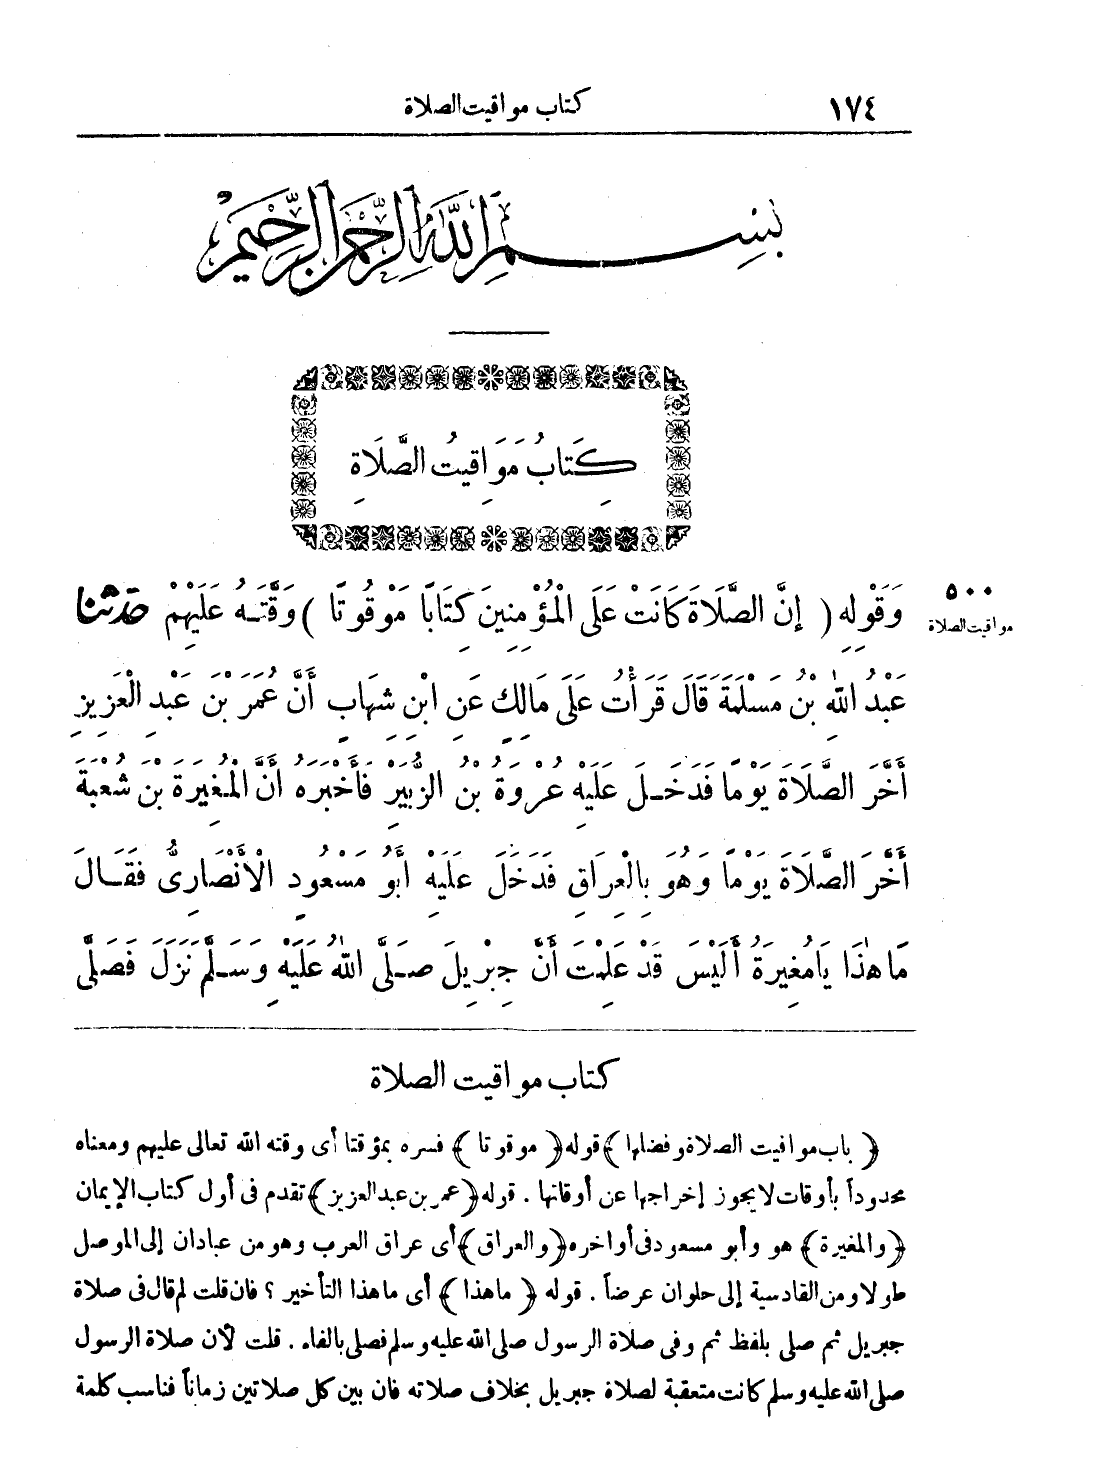 ١٧٤
كتاب مواقيت الصلاة
بِسْمِ اللهِ الرَّحْمنِ الرَّحِيمِ
كِتَابُ مَوَاقِيتُ الصَّلَاةِ
٥٠٠
مواقيت الصلاة
وَقَوْلِهِ ( إِنَّ الصَّلَاةَ كَانَتْ عَلَى الْمُؤْمِنِينَ كِتَابًا مَوْقُوتًا ) وَقَّتَهُ عَلَيْهِمْ حدثنا
عَبْدُ اللهِ بْنُ مَسْلَمَةَ قَالَ قَرَأْتُ عَلَى مَالِكٍ عَنِ ابْنِ شِهَابٍ أَنَّ عُمَرَ بْنَ عَبْدِ الْعَزِيزِ
أَخَّرَ الصَّلَاةَ يَوْمًا فَدَخَلَ عَلَيْهِ عُرْوَةُ بْنُ الزُّبَيْرِ فَأَخْبَرَهُ أَنَّ الْمُغِيرَةَ بْنَ شُعْبَةَ
أَخَّرَ الصَّلَاةَ يَوْمًا وَهُوَ بِالْعِرَاقِ فَدَخَلَ عَلَيْهِ أَبُو مَسْعُودٍ الْأَنْصَارِىُّ فَقَالَ
مَا هٰذَا يَامُغِيرَةُ أَلَيْسَ قَدْ عَلِمْتَ أَنَّ جِبْرِيلَ صَلَّى اللهُ عَلَيْهِ وَسَلَّمَ نَزَلَ فَصَلَّى
كتاب مواقيت الصلاة
﴿ باب مواقيت الصلاة وفضلها ﴾ قوله ﴿ موقوتا ﴾ فسره بمؤقتا أى وقته الله تعالى عليهم ومعناه
محدوداً بأوقات لايجوز إخراجها عن أوقاتها . قوله ﴿عمر بن عبد العزيز﴾ تقدم فى أول كتاب الإيمان
﴿والمغيرة﴾ هو وأبو مسعود فى أواخره ﴿والعراق﴾ أى عراق العرب وهو من عبادان إلى الموصل
طولا ومن القادسية إلى حلوان عرضاً . قوله ﴿ ماهذا ﴾ أى ماهذا التأخير ؟ فان قلت لم قال فى صلاة
جبريل ثم صلى بلفظ ثم وفى صلاة الرسول صلى الله عليه وسلم فصلى بالفاء . قلت لأن صلاة الرسول
صلى الله عليه وسلم كانت متعقبة لصلاة جبريل بخلاف صلاته فان بين كل صلاتين زماناً فناسب كلمة